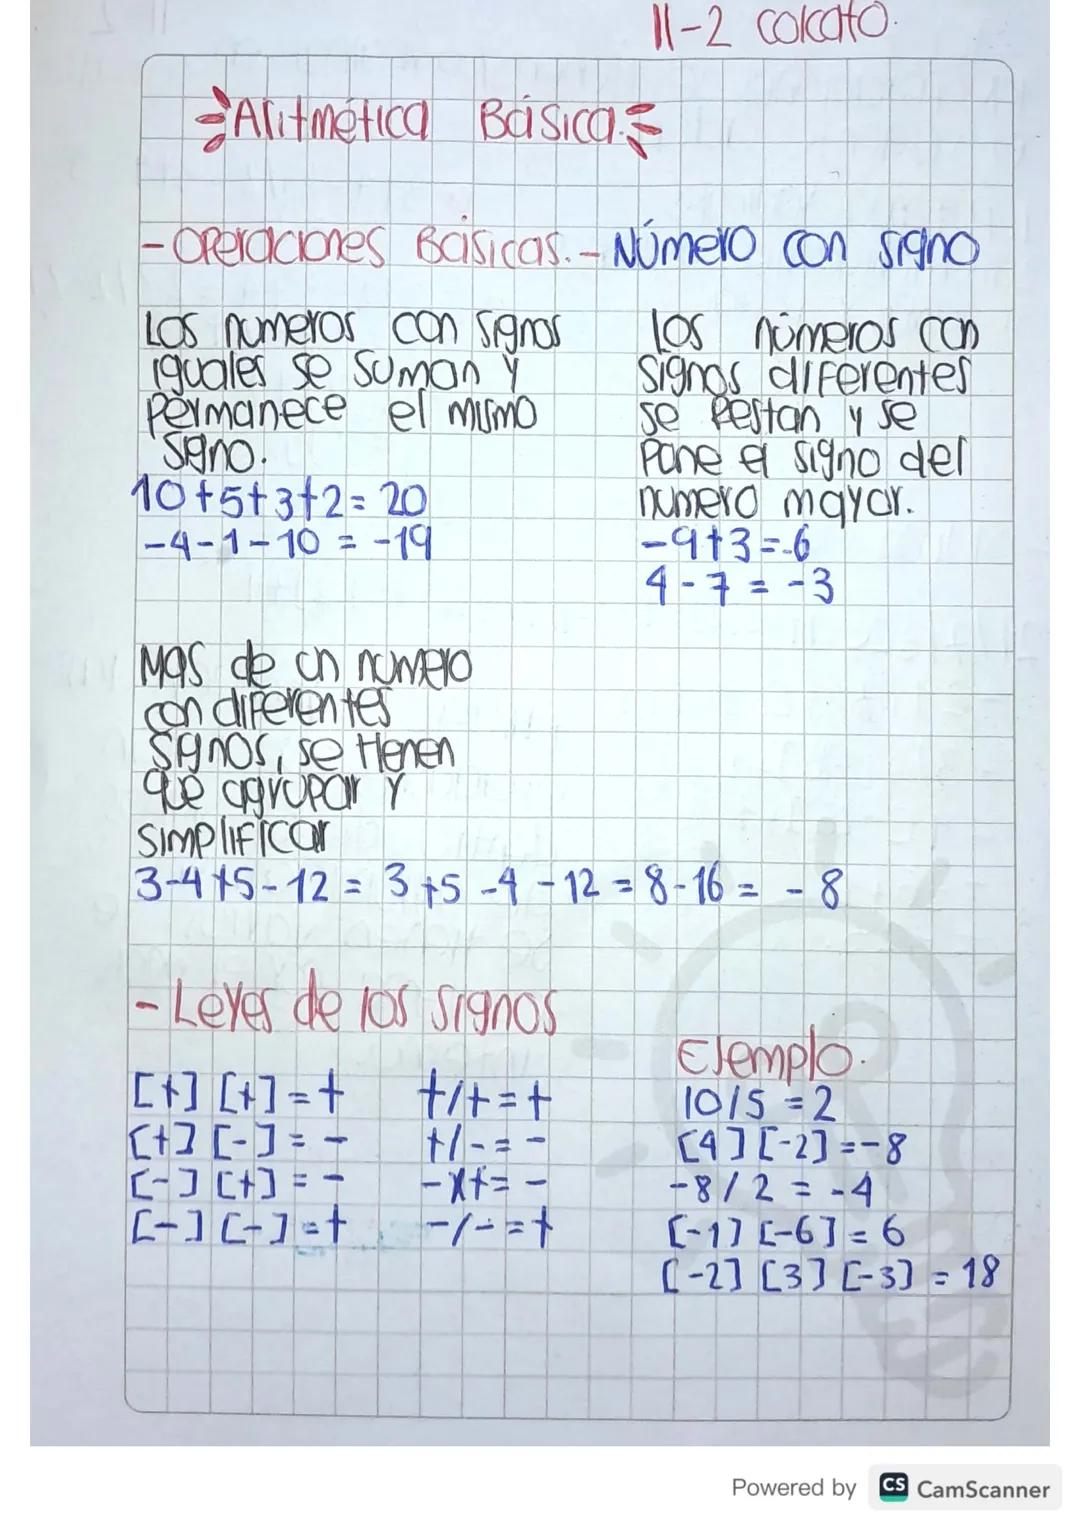 11-2 colcato.
Aritmética Básica.
- Operaciones Básicas. - Número con signo
Los numeros con signos
iguales se suman y
permanece el mismo
signo.
10+5+3+2= 20
-4-1-10 = -19
Los números con
signos diferentes
se restan y se
pone el signo del
numero mayor.
-9+3=-6
4-7 = -3
Mas de un numero
con diferentes
signos, se tienen
que agrupar y
simplificar
3-4+5-12 = 3+5 -4 -12 = 8-16 = -8
- Leyes de los signos
[+] [+] = +
[+] [-] = -
[-] [+] = -
[-] [-] = +
+/+ = +
+/- = -
-/+ = -
-/- = +
Ejemplo.
10/5 = 2
[4] [-2] = -8
-8/2 = -4
[-1] [-6] = 6
[-2] [3] [-3] = 18
Powered by CS CamScanner